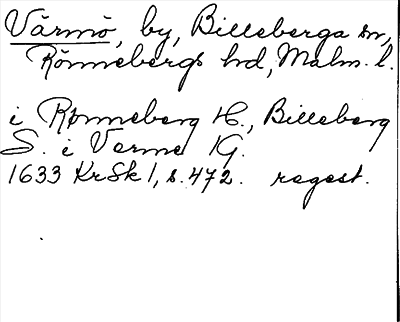 Värmö, by, Billeberga sn,
Rönnebergs hd, Malm. l.
i Rønneberg H., Billeberg
S. i Verme G.
1633 KrSk 1, s. 472. regest.